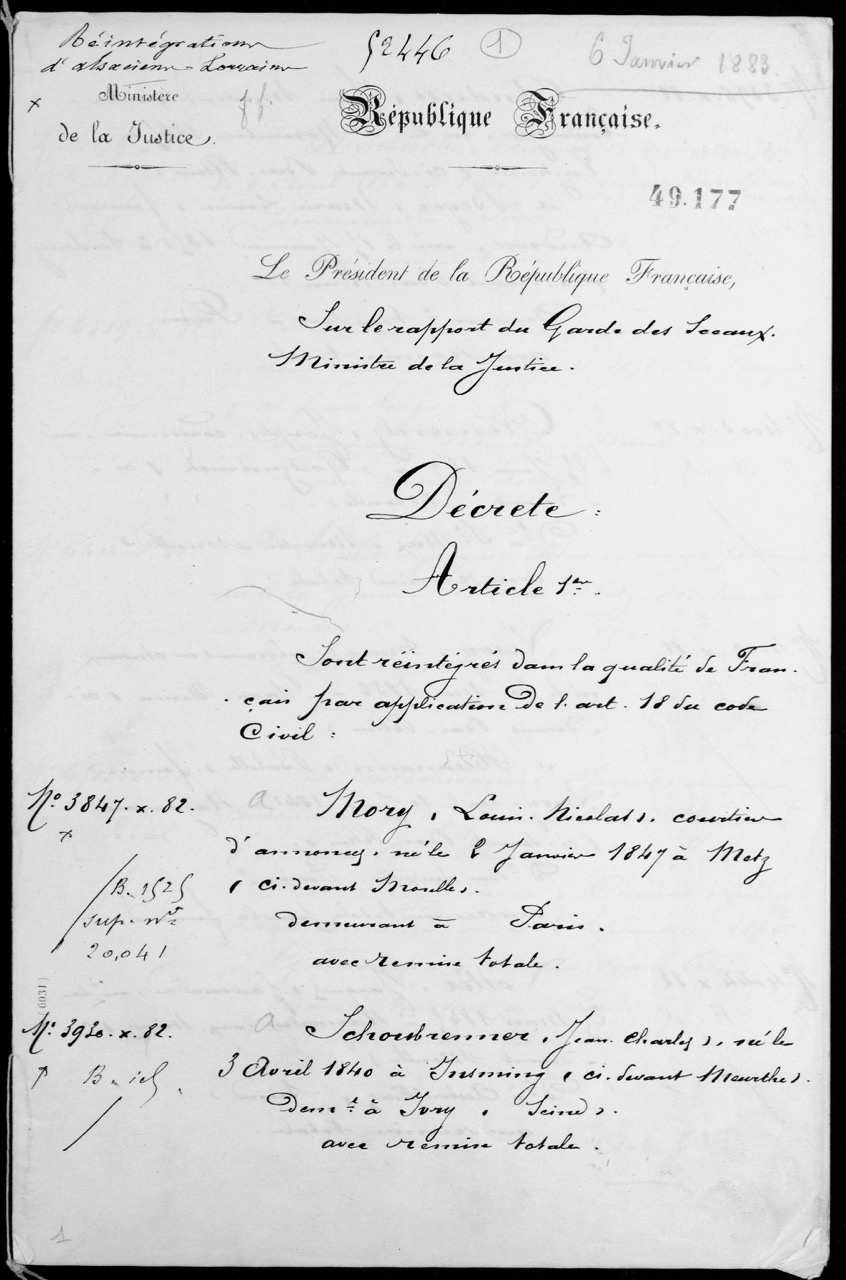 Réintégrations
d'alsaciens-Lorrains
52446
1
6 Janvier 1883
x
Ministère
de la Justice.
f.f.
République Française.
49.177
Le Président de la République Française,
Sur le rapport du Garde des Sceaux.
Ministre de la Justice.
Décrete :
Article 1er.
Sont réintégrés dans la qualité de Fran-
çais par application de l'art. 18 du code
Civil :
No 3847. x. 82.
x
Mory, (Louis-Nicolas), courtier
d'annonces, né le 2 Janvier 1847 à Metz
(ci-devant Moselle).
demeurant à Paris.
avec remise totale.
B. 1525
sup. nt
20,041
(6031)
No 3930. x. 82.
Schoubrenner, (Jean Charles), né le
3 Avril 1840 à Insming (ci-devant Meurthe).
demt à Ivry, (Seine).
avec remise totale.
1